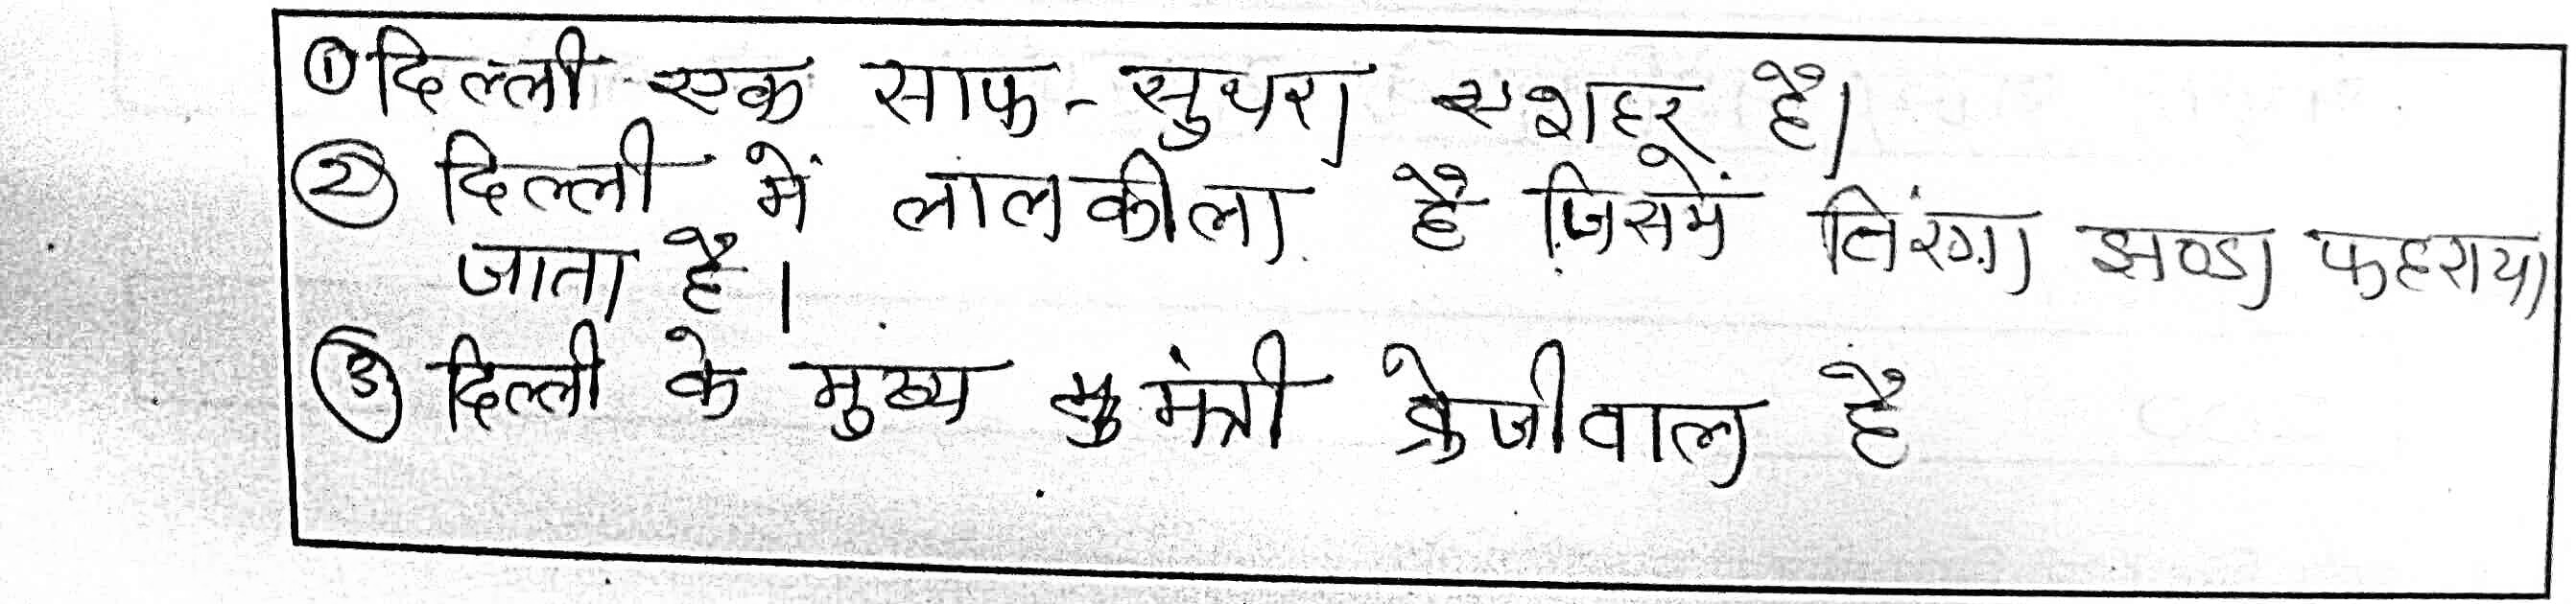 ① दिल्ली एक साफ-सुथरा शहर है।
② दिल्ली में लालकीला है जिसमें तिरंगा झण्डा फहराया
जाता है।
③ दिल्ली के मुख्य मंत्री क्रेजीवाल है